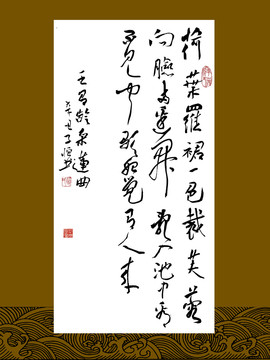 荷葉羅裙一色裁芙蓉
向臉兩邊開亂入池中看
不見聞歌始覺有人來
王昌齡采蓮曲